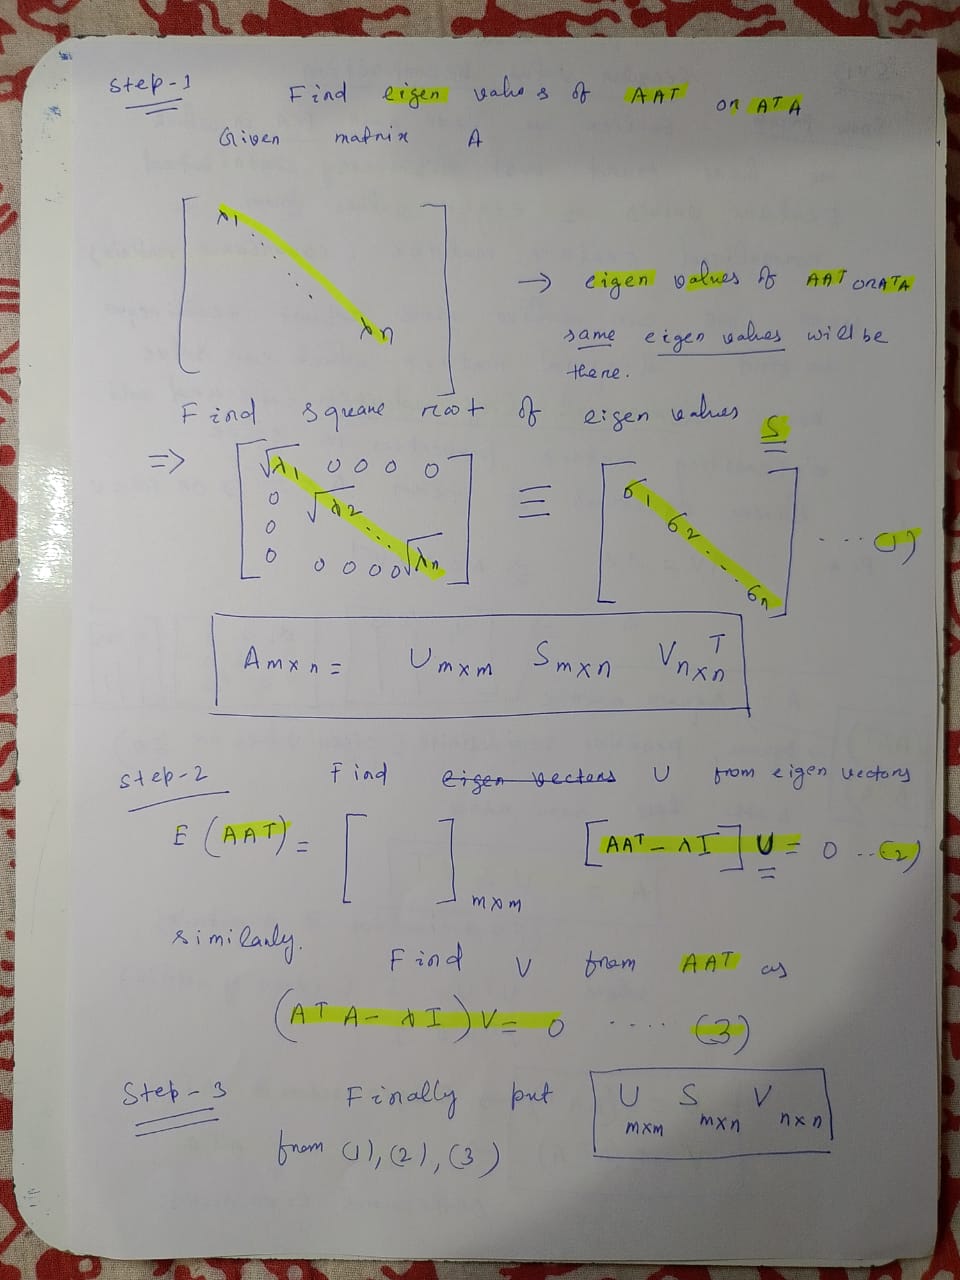 Step-1
Find eigen values of AAT or ATA
Given matrix A
λ1
λn
→ eigen values of AAT OR ATA
same eigen values will be
there.
Find square root of eigen values
S
=> √λ1 0 0 0 0
0 √λ2
0
0 0 0 0 0 √λn
≡ σ1 σ2 ... σn .... (1)
Amxn = Umxm Smxn Vnxn T
Step-2 Find eigen vectors U from eigen vectors
E (AAT) = [ ] mxm [AAT - λI] U = 0 ... (2)
similarly.
Find V from AAT as
(ATA - λI) V = 0 .... (3)
Step-3 Finally put U mxm S mxn V nxn
from (1), (2), (3)